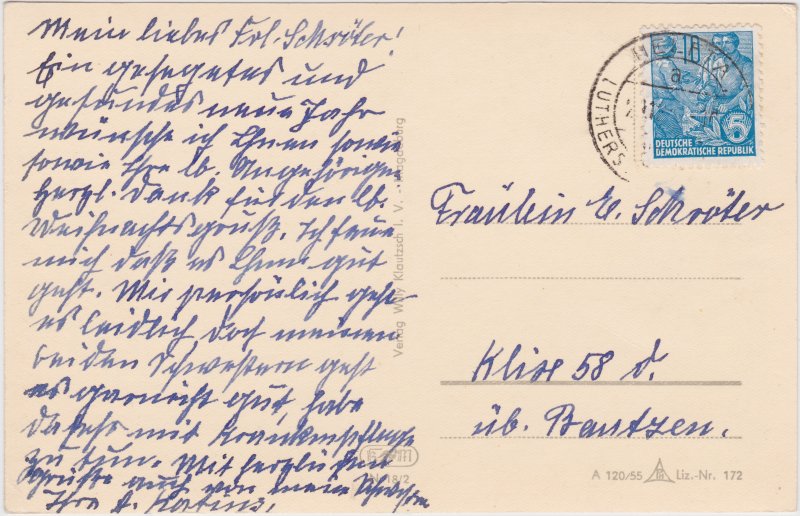 Mein liebes Frl. Schröter!
Ein gesegnetes und
gesundes neues Jahr
wünsche ich Ihnen sowie
sowie Ihre lb. Angehörigen
Herzl. Dank für den lb.
Weihnachtsgruß. Ich freue
mich daß es Ihnen gut
geht. Mir persönlich geht
es leidlich doch meinen
beiden Schwestern geht
es garnicht gut, habe
da sehr mit Krankenpflege
zu tun. Mit herzlichen
Grüße auch von meine Schwestern
Ihre
Verlag Willy Klautzsch I. V. Magdeburg
18/2
LUTHERS
DEUTSCHE
DEMOKRATISCHE REPUBLIK
5
Fräulein E. Schröter
Klixe 58 d.
üb. Bautzen.
A 120/55 Liz.-Nr. 172